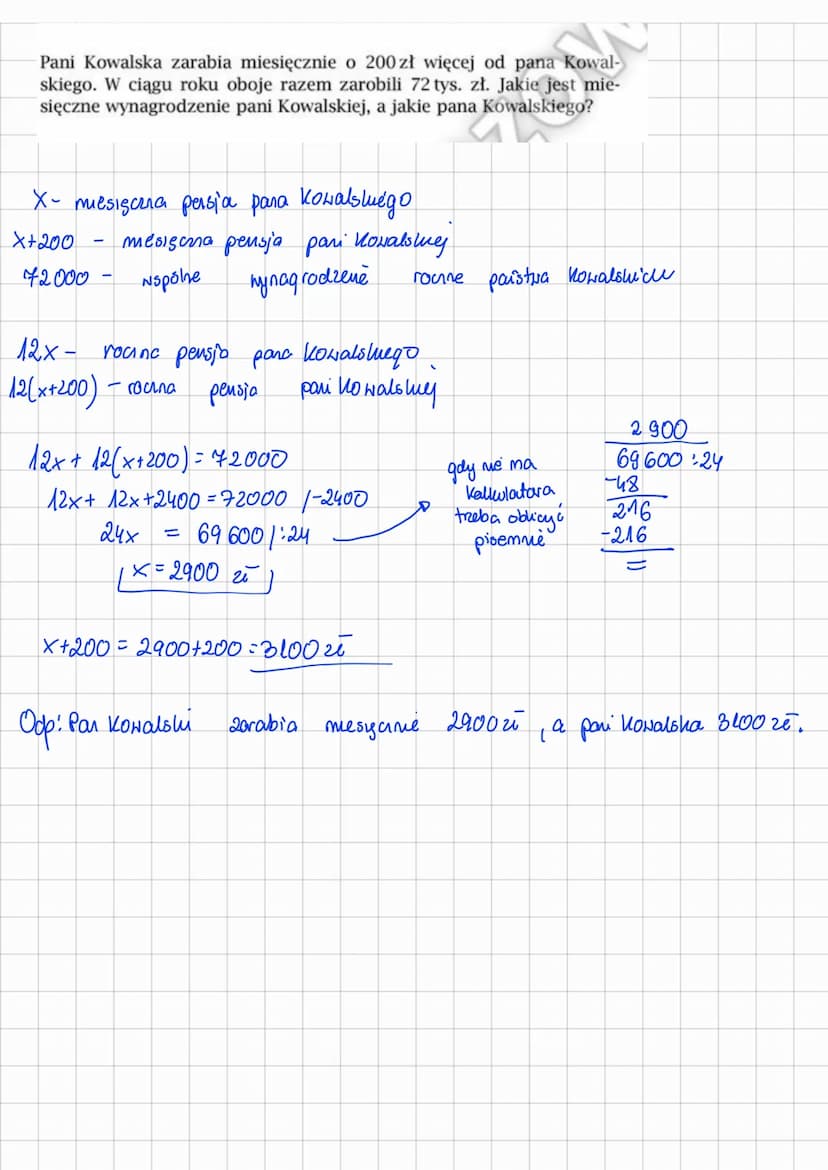 Pani Kowalska zarabia miesięcznie o 200 zł więcej od pana Kowal-
skiego. W ciągu roku oboje razem zarobili 72 tys. zł. Jakie jest mie-
sięczne wynagrodzenie pani Kowalskiej, a jakie pana Kowalskiego?
ZOW
x - miesięczna pensja pana Kowalskiego
x+200 - miesięczna pensja pani Kowalskiej
72 000 - wspólne wynagrodzenie roczne państwa Kowalskich
12x - roczna pensja pana Kowalskiego
12(x+200) - roczna pensja pani Kowalskiej
12x + 12(x+200) = 72000
12x + 12x + 2400 = 72000 /-2400
24x = 69 600 /:24
x = 2900 zł
gdy nie ma
kalkulatora,
trzeba obliczyć
pisemnie
2 900
69 600 : 24
-48
216
-216
=
x+200 = 2900+200 = 3100 zł
Odp: Pan Kowalski zarabia miesięcznie 2900 zł, a pani Kowalska 3100 zł.